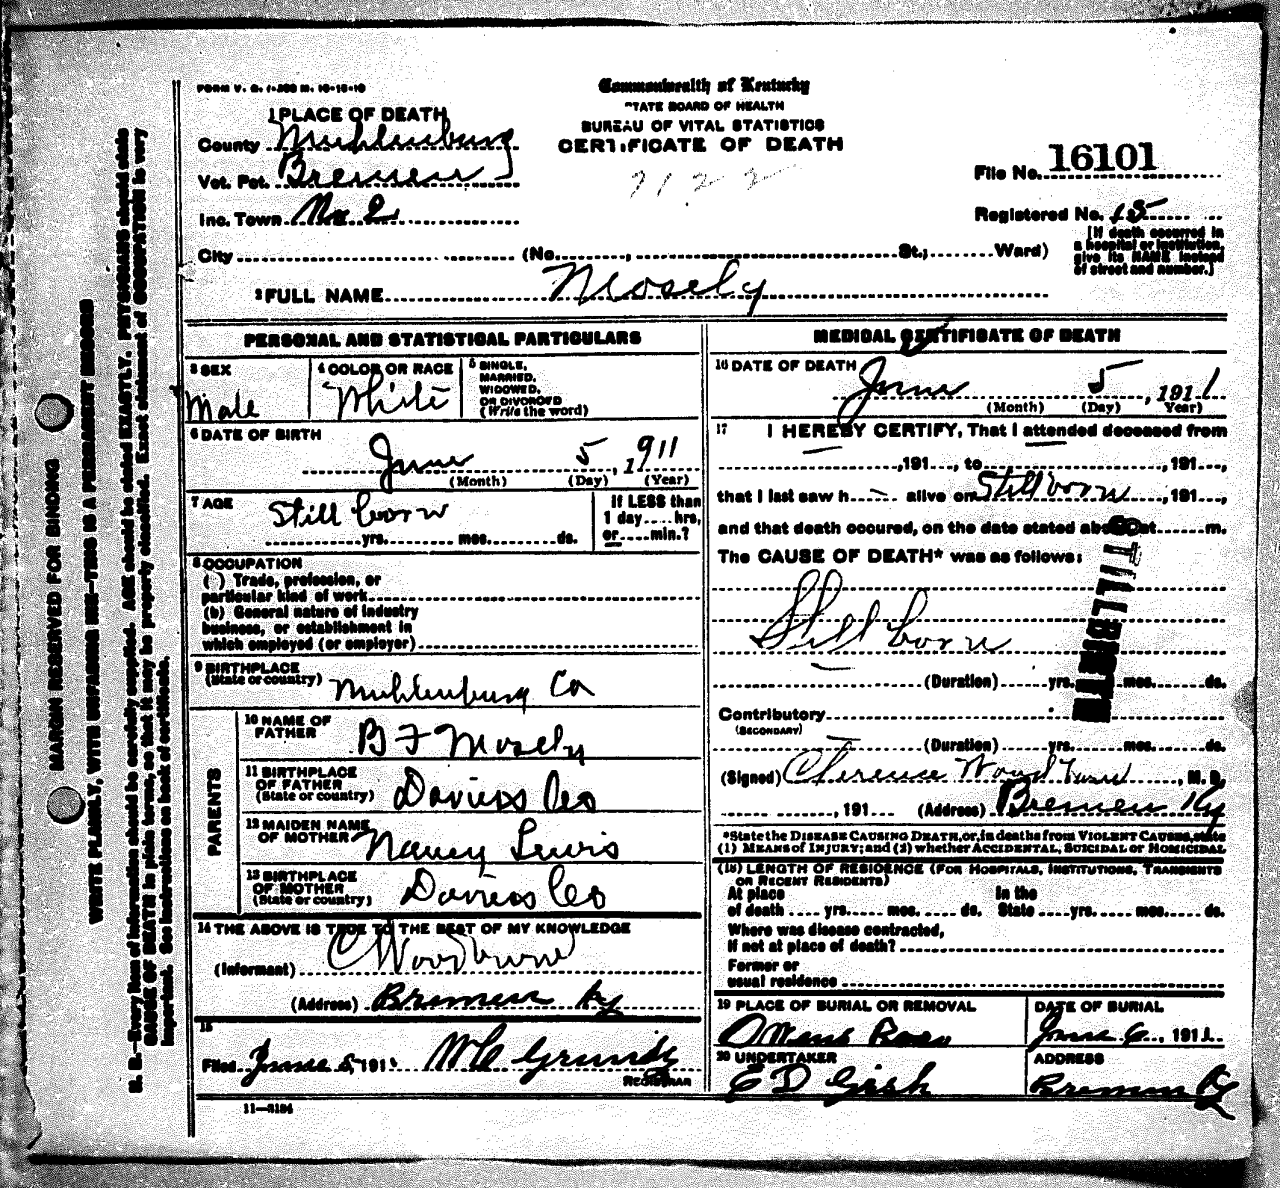 Commonwealth of Kentucky
STATE BOARD OF HEALTH
BUREAU OF VITAL STATISTICS
CERTIFICATE OF DEATH
7122
FORM V. S. 1-
1 PLACE OF DEATH
County Muhlenburg
Vot. Pct. Bremen
Inc. Town No 2
City (No. , St.; Ward)
File No. 16101
Registered No. 15
[If death occurred in
a hospital or institution,
give its NAME instead
of street and number.]
2 FULL NAME Mosely
PERSONAL AND STATISTICAL PARTICULARS
3 SEX
Male
4 COLOR OR RACE
White
5 SINGLE,
MARRIED,
WIDOWED,
OR DIVORCED
(Write the word)
6 DATE OF BIRTH
June 5, 1911
(Month) (Day) (Year)
7 AGE
Still born
yrs. mos. ds.
If LESS than
1 day.....hrs,
or.....min.?
8 OCCUPATION
(a) Trade, profession, or
particular kind of work
(b) General nature of industry
business, or establishment in
which employed (or employer)
9 BIRTHPLACE
(State or country) Muhlenburg Co
PARENTS
10 NAME OF
FATHER B F Mosely
11 BIRTHPLACE
OF FATHER
(State or country) Daviess Co
12 MAIDEN NAME
OF MOTHER Nancy Lewis
13 BIRTHPLACE
OF MOTHER
(State or country) Daviess Co
14 THE ABOVE IS TRUE TO THE BEST OF MY KNOWLEDGE
(Informant) C Woodburn
(Address) Bremen Ky
15
Filed June 5, 1911 W C Grundy
REGISTRAR
11-3184
MEDICAL CERTIFICATE OF DEATH
16 DATE OF DEATH
June 5, 1911
(Month) (Day) Year)
17 I HEREBY CERTIFY, That I attended deceased from
, 191..., to , 191...,
that I last saw h alive on Still born, 191...,
and that death occured, on the date stated above, at m.
The CAUSE OF DEATH* was as follows:
Still born
STILLBIRTH
(Duration) yrs. mos. ds.
Contributory
(SECONDARY)
(Duration) yrs. mos. ds.
(Signed) Clerence Woodburn, M. D.
, 191 (Address) Bremen Ky
*State the DISEASE CAUSING DEATH, or, in deaths from VIOLENT CAUSES, state
(1) MEANS of INJURY; and (2) whether ACCIDENTAL, SUICIDAL or HOMICIDAL
(18) LENGTH OF RESIDENCE (FOR HOSPITALS, INSTITUTIONS, TRANSIENTS
OR RECENT RESIDENTS)
At place In the
of death .... yrs. .... mos. .... ds. State ....yrs. .... mos. .... ds.
Where was disease contracted,
If not at place of death?
Former or
usual residence
19 PLACE OF BURIAL OR REMOVAL
DATE OF BURIAL
June 6, 1911
20 UNDERTAKER
E D Gish
ADDRESS
Bremen Ky
MARGIN RESERVED FOR BINDING
WRITE PLAINLY, WITH UNFADING INK—THIS IS A PERMANENT RECORD
N. B.—Every item of information should be carefully supplied. AGE should be stated EXACTLY. PHYSICIANS should state
CAUSE OF DEATH in plain terms, so that it may be properly classified. Exact statement of OCCUPATION is very
important. See instructions on back of certificate.